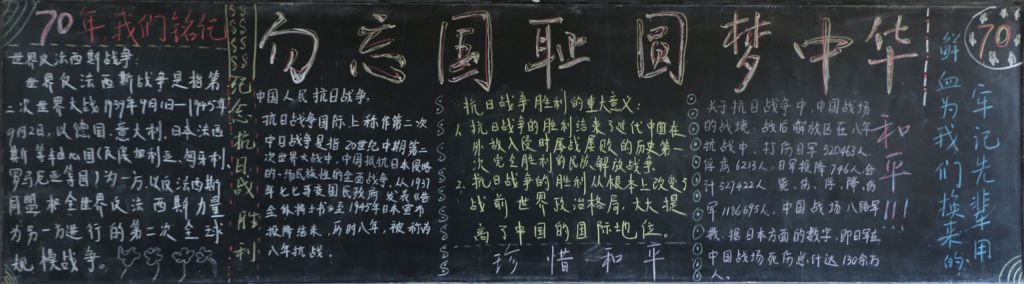 勿忘国耻圆梦中华
70年,我们铭记
世界反法西斯战争:
世界反法西斯战争是指第
二次世界大战1939年9月1日—1945年
9月2日,以德国、意大利、日本法西
斯等轴心国(及保加利亚、匈牙利、
罗马尼亚等国)为一方,以反法西斯
同盟和全世界反法西斯力量
为另一方进行的第二次全球
规模战争。
纪念抗日战胜利
中国人民抗日战争.
抗日战争国际上称作第二次
中日战争是指20世纪中期第二
次世界大战中,中国抵抗日本侵略
的一场民族性的全面战争,从1937
年七七
至1945年日本宣布
投降结束,历时八年,被称为
八年抗战.
抗日战争胜利的重大意义:
1.抗日战争的胜利结束了近代中国在
外敌入侵时屡战屡败的历史第一
次完全胜利的民族解放战争
2.抗日战争的胜利从根本上改变了
战前世界政治格局,大大提
高了中国的国际地位.
珍惜和平
关于抗日战争中,中国战场
的战绩,战后解放区在八年
抗战中,打伤日军520463人,
俘虏6213人,日军投降746人,合
计527422人,毙、伤、俘、降、伪
军1186695人,中国战场八路军
数,据日本方面的数字,即日军在
中国战场死伤总计达130余万
人.
和平!!!
70
牢记先辈用
鲜血为我们换来的